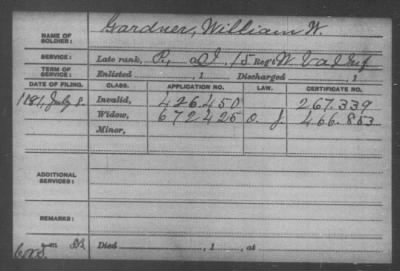 Gardner, William W.
NAME OF SOLDIER:
SERVICE: Late rank P., Co. I, 15 Reg't W. Va. Inf
TERM OF SERVICE: Enlisted , 1 Discharged , 1
DATE OF FILING. CLASS. APPLICATION NO. LAW. CERTIFICATE NO.
1881, July 8. Invalid, 426.450 267.339
Widow, 672425 O. 466.853
Minor,
ADDITIONAL SERVICES:
REMARKS:
Died , 1 , at